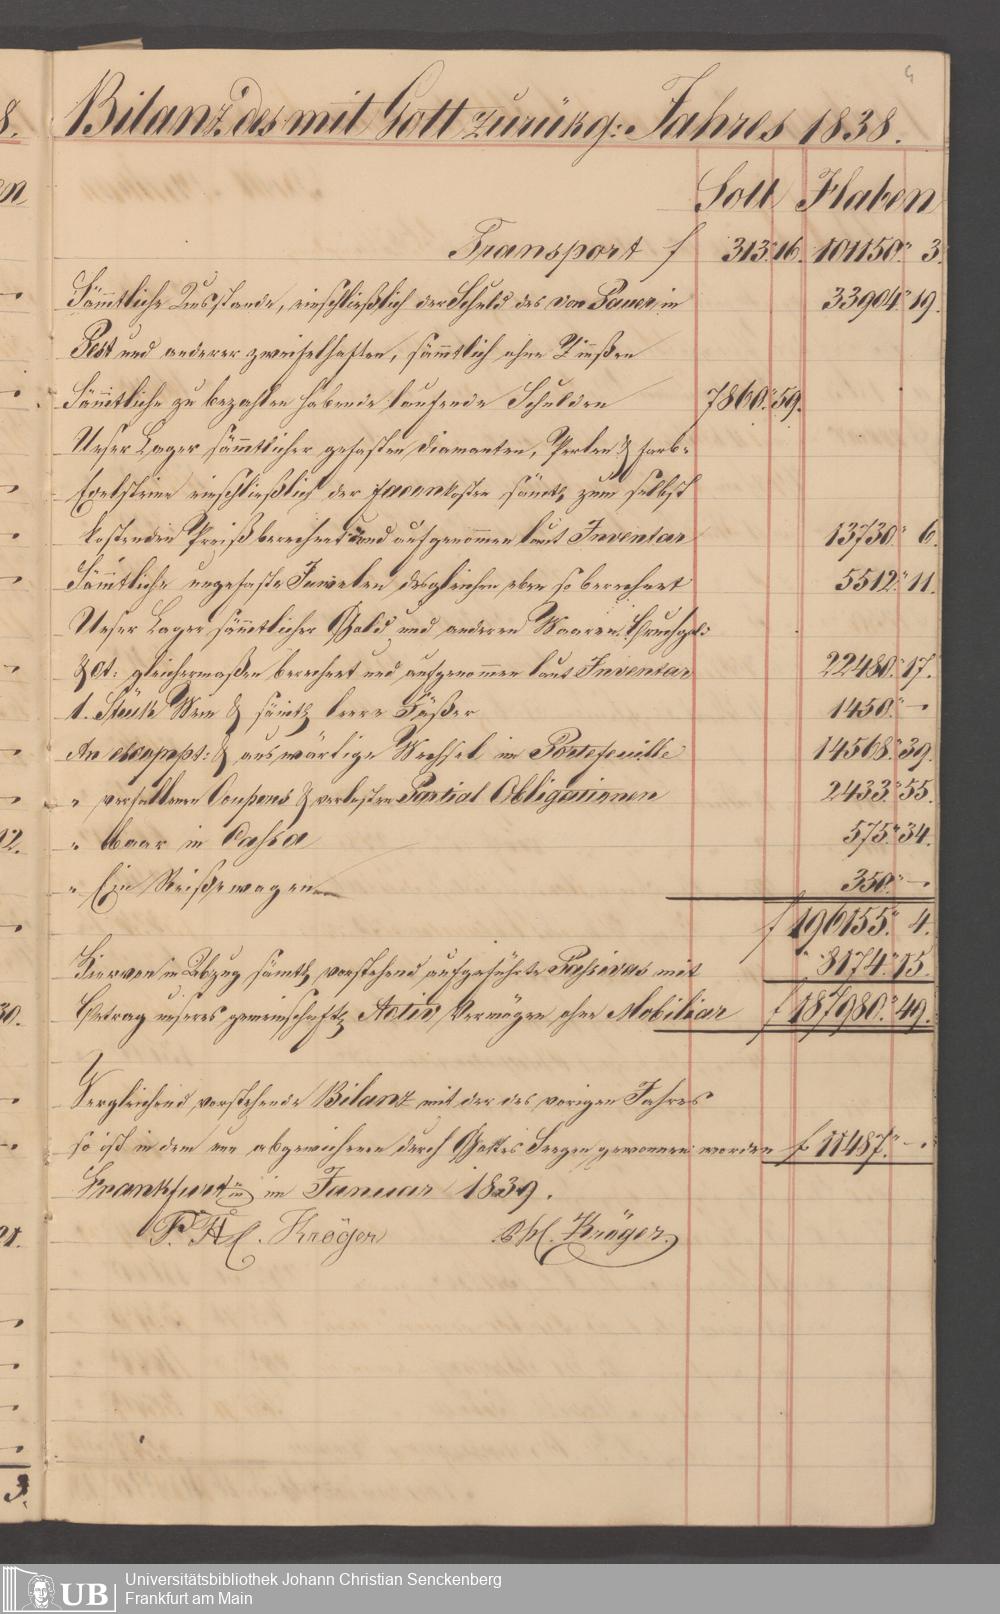 Bilanz des mit Gott zurükg: Jahres 1838.
Soll Haben
Transport f 313. 16. 101150. 3.
Sämtliche Ausstände, einschließlich der Schuld des von Pauer in 33904. 19.
Pest und anderer zweifelhaften, sämtlich ohne Zinßen
Sämtliche zu bezahlen habende laufende Schulden 7860. 59.
Unser Lager sämtlicher gefasten Diamanten, Perlen & farb-
Edelsteine einschließlich der Faconkosten sämtl. zum selbst
kostenden Preiß berechnet und aufgenommen laut Inventar 13730. 6.
Sämtliche ungefaste Juwelen desgleichen eben so berechnet 5512. 11.
Unser Lager sämtlicher Gold und anderen Waaren, Bruchgold
&ct: gleichermaßen berechnet und aufgenommen laut Inventar 22480. 17.
1. Stück Wein & sämtl. leere Fäßer 1450. -
An escompt: & auswärtige Wechsel im Portefeuille 14568. 39.
" verfallenen Coupons & verlosten Partial Obligationen 2433. 55.
" baar in Cassa 575. 34.
" Ein Reißewagen 350. -
f 196155. 4.
Hiervon in Abzug sämtl. vorstehend aufgeführte Passivas mit " 8174. 15.
Betrag unseres gemeinschaftl. Activ Vermögen ohne Mobiliar f 187980. 49.
Vergleichend vorstehende Bilanz mit der des vorigen Jahres
so ist in dem nun abgewichenen durch Gottes Seegen gewonnen worden f 11487. -
Frankfurt im Januar 1839.
Kröger Kröger
UB Universitätsbibliothek Johann Christian Senckenberg
Frankfurt am Main